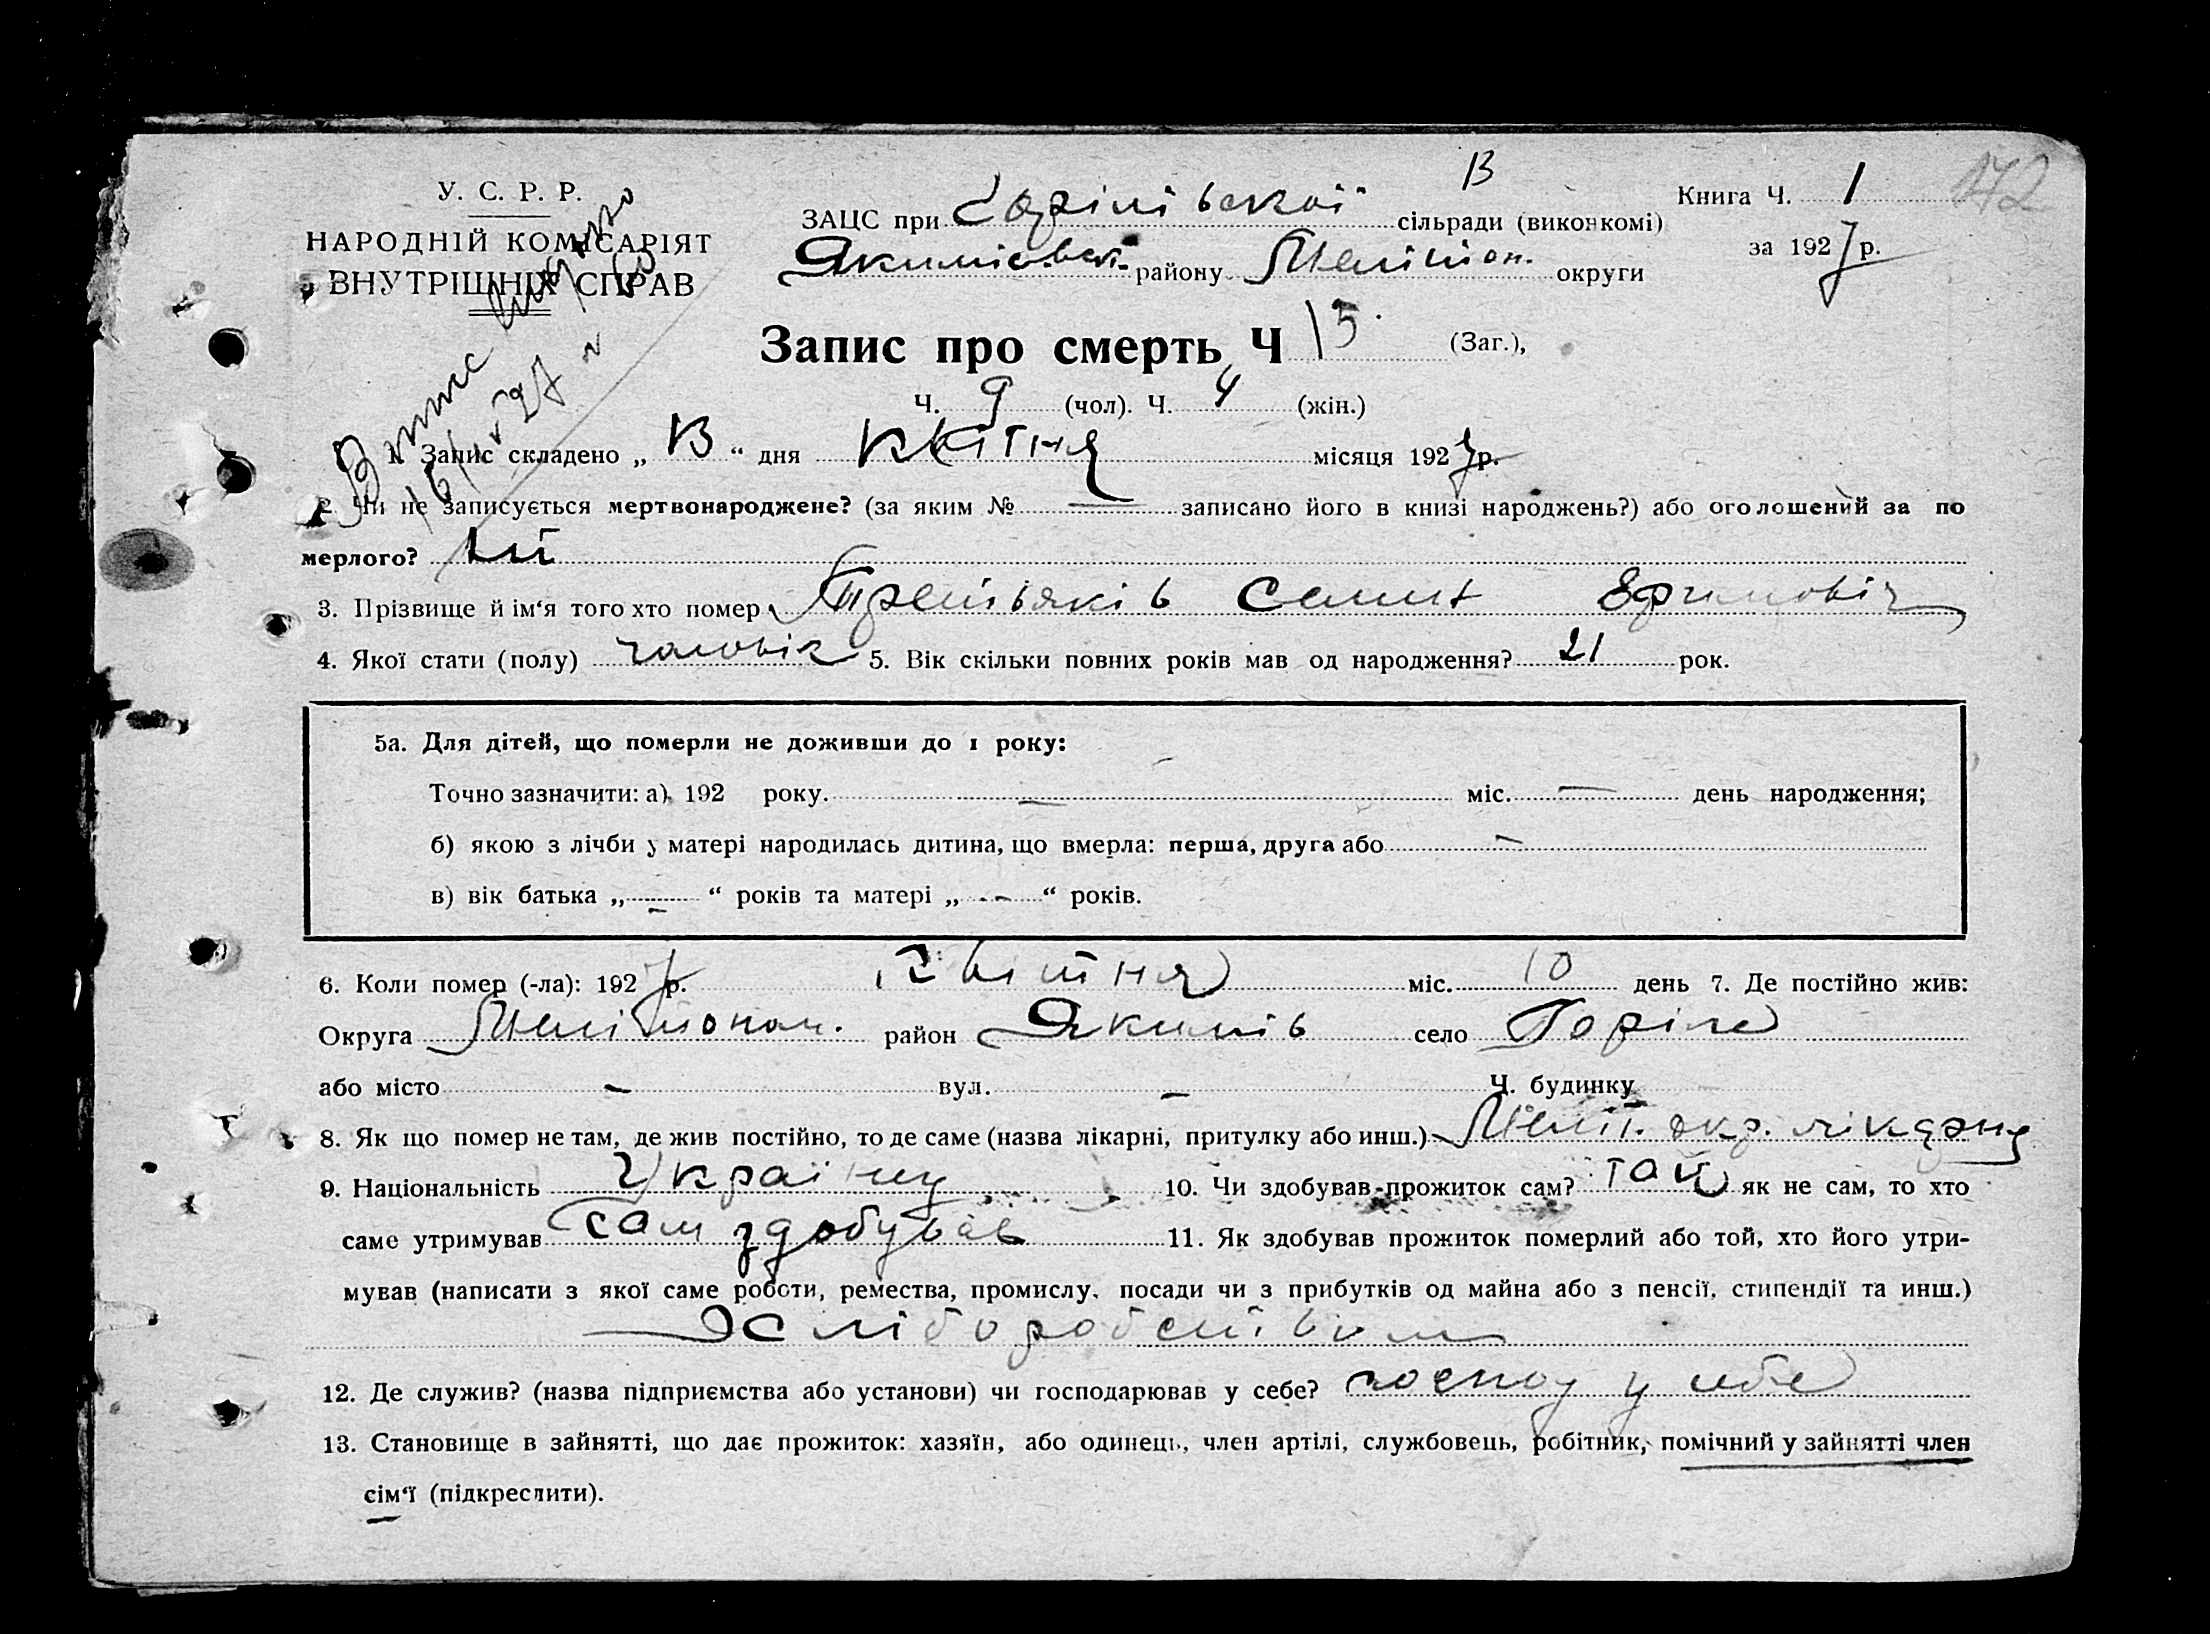 У. С. Р. Р.
НАРОДНІЙ КОМІСАРІЯТ
ВНУТРІШНІХ СПРАВ
В
Книга Ч. 1
172
ЗАЦС при Горілівської сільради (виконкомі)
за 1927 р.
Якимівськ. району Меліт. округи
Запис про смерть Ч 13. (Заг.),
Ч. 9 (чол). Ч. 4 (жін.)
Витяг
1. Запис складено „ 13 “ дня Квітня місяця 1927 р.
2. Чи не записується мертвонароджене? (за яким № — записано його в книзі народжень?) або оголошений за по
мерлого? Ні
3. Прізвище й ім‘я того хто помер Третьяків Семен Ефимовіч
4. Якої стати (полу) чоловік 5. Вік скільки повних років мав од народження? 21 рок.
5а. Для дітей, що померли не доживши до 1 року:
Точно зазначити: а) 192 року. — міс. — день народження;
б) якою з лічби у матері народилась дитина, що вмерла: перша, друга або —
в) вік батька „ — “ років та матері „ — “ років.
6. Коли помер (-ла): 1927 р. Квітня міс. 10 день 7. Де постійно жив:
Округа Мелітопол. район Якимів село Горіле
або місто — вул. — Ч. будинку —
8. Як що помер не там, де жив постійно, то де саме (назва лікарні, притулку або инш.) Меліт. окр. лікарня
9. Національність Українец 10. Чи здобував прожиток сам? Так як не сам, то хто
саме утримував сам здобував 11. Як здобував прожиток померлий або той, хто його утри-
мував (написати з якої саме роботи, ремества, промислу, посади чи з прибутків од майна або з пенсії, стипендії та инш.)
Хліборобством
12. Де служив? (назва підприємства або установи) чи господарював у себе? господ у себе
13. Становище в зайнятті, що дає прожиток: хазяїн, або одинець, член артілі, службовець, робітник, помічний у зайнятті член
сім‘ї (підкреслити).